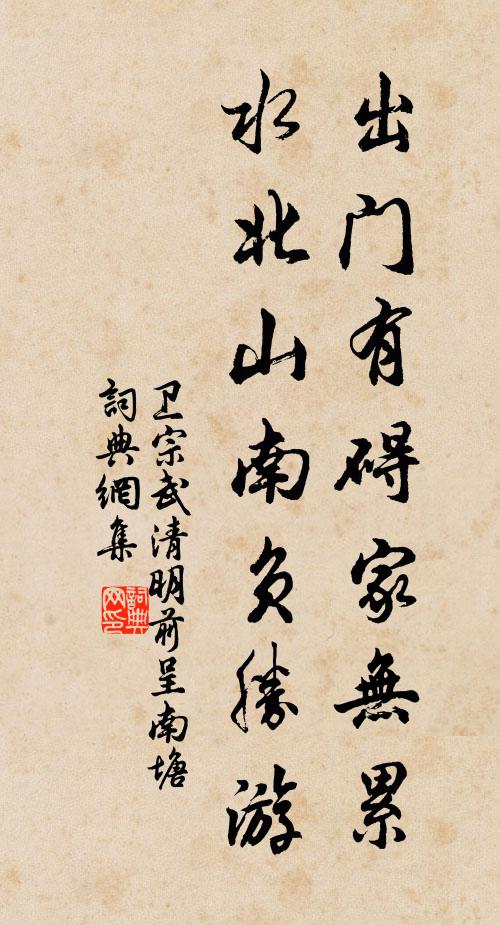 出门有碍家無累
水北山南负勝游
卫宗武清明前呈南塘
詞典網集
詞典网印